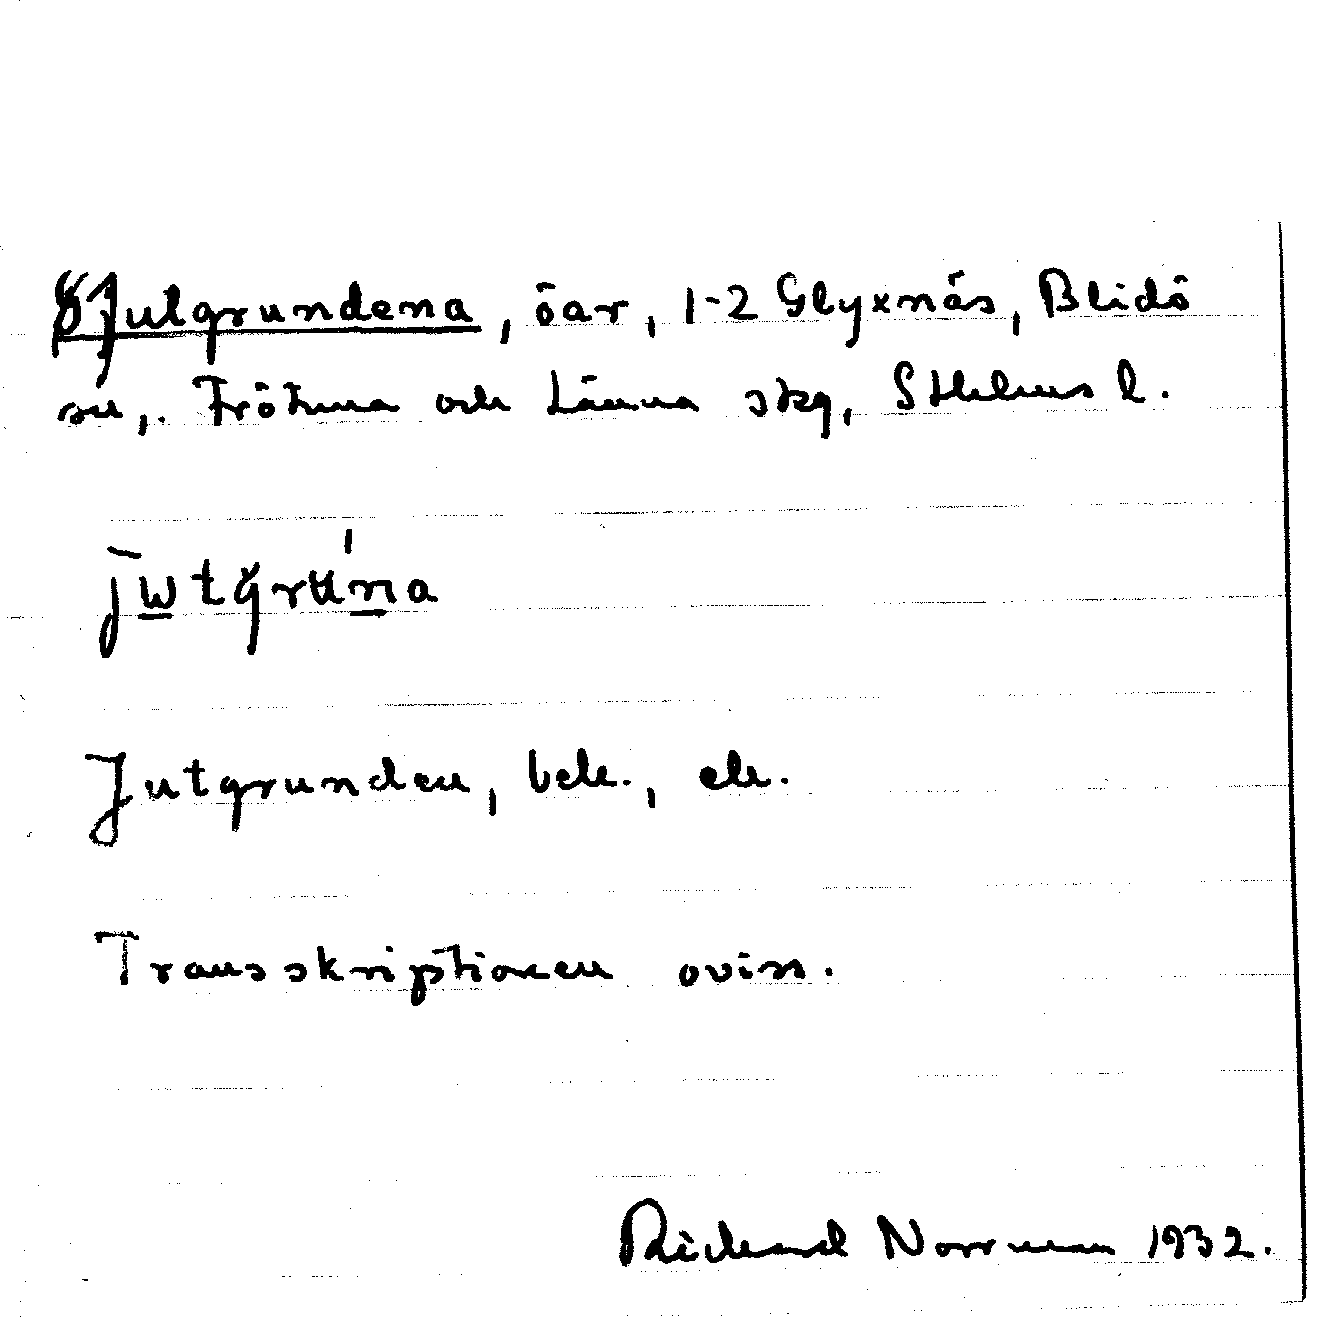 Julgrundena, öar, 1-2 Glyxnäs, Blidö
sn,. Frötuna och Länna skg, Sthlms l.
jutgruna
Jutgrunden, bek., ek.
Transskriptionen oviss.
Rickard Norrman 1932.